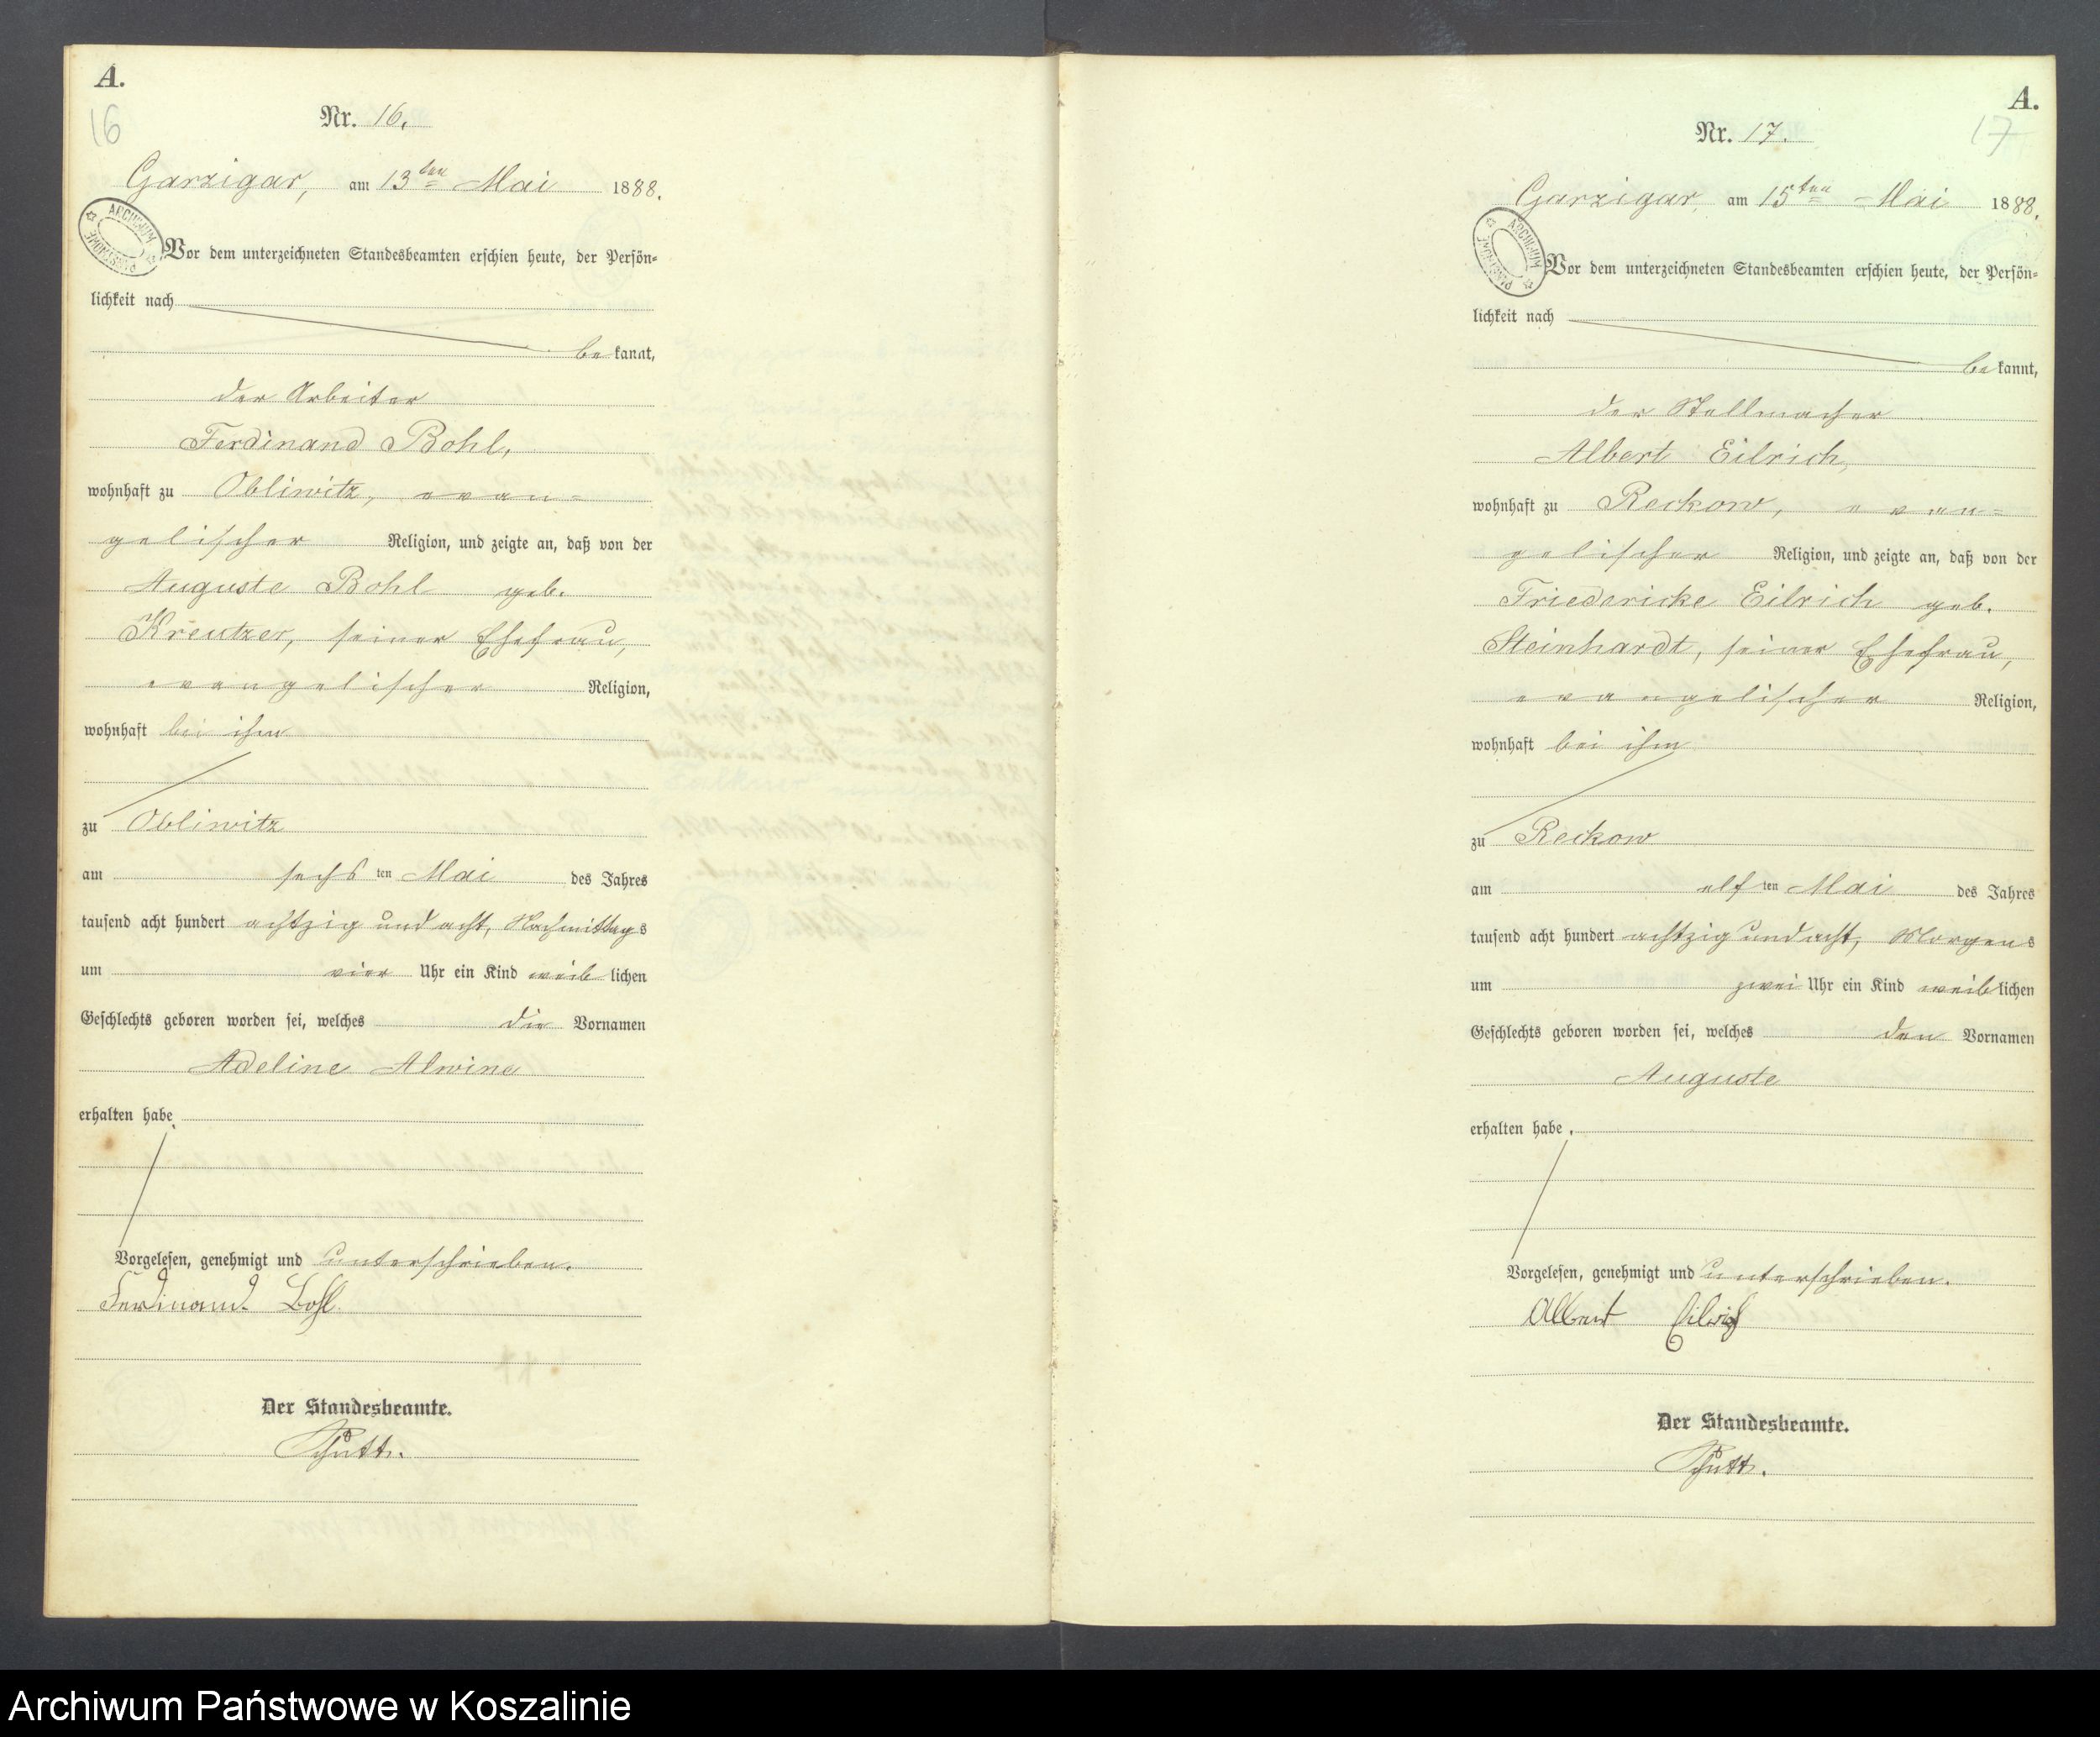 A.
16
Nr. 16.
Garzigar, am 13ten Mai 1888.
ARCHIWUM PAŃSTWOWE
Vor dem unterzeichneten Standesbeamten erschien heute, der Persön-
lichkeit nach
be kannt,
der Arbeiter
Ferdinand Bohl,
wohnhaft zu Obliwitz, evan-
gelischer Religion, und zeigte an, daß von der
Auguste Bohl geb.
Kreutzer, seiner Ehefrau,
evangelischer Religion,
wohnhaft bei ihm
zu Obliwitz
am sechs ten Mai des Jahres
tausend acht hundert achtzig und acht, Nachmittags
um vier Uhr ein Kind weib lichen
Geschlechts geboren worden sei, welches die Vornamen
Adeline Alwine
erhalten habe.
Vorgelesen, genehmigt und unterschrieben.
Ferdinand Bohl
Der Standesbeamte.
A.
17
Nr. 17.
Garzigar, am 15ten Mai 1888.
ARCHIWUM PAŃSTWOWE
Vor dem unterzeichneten Standesbeamten erschien heute, der Persön-
lichkeit nach
be kannt,
der Stellmacher
Albert Eilrich,
wohnhaft zu Reckow, evan-
gelischer Religion, und zeigte an, daß von der
Friedericke Eilrich geb.
Steinhardt, seiner Ehefrau,
evangelischer Religion,
wohnhaft bei ihm
zu Reckow
am elf ten Mai des Jahres
tausend acht hundert achtzig und acht, Morgens
um zwei Uhr ein Kind weib lichen
Geschlechts geboren worden sei, welches den Vornamen
Auguste
erhalten habe.
Vorgelesen, genehmigt und unterschrieben.
Albert Eilrich
Der Standesbeamte.
Archiwum Państwowe w Koszalinie